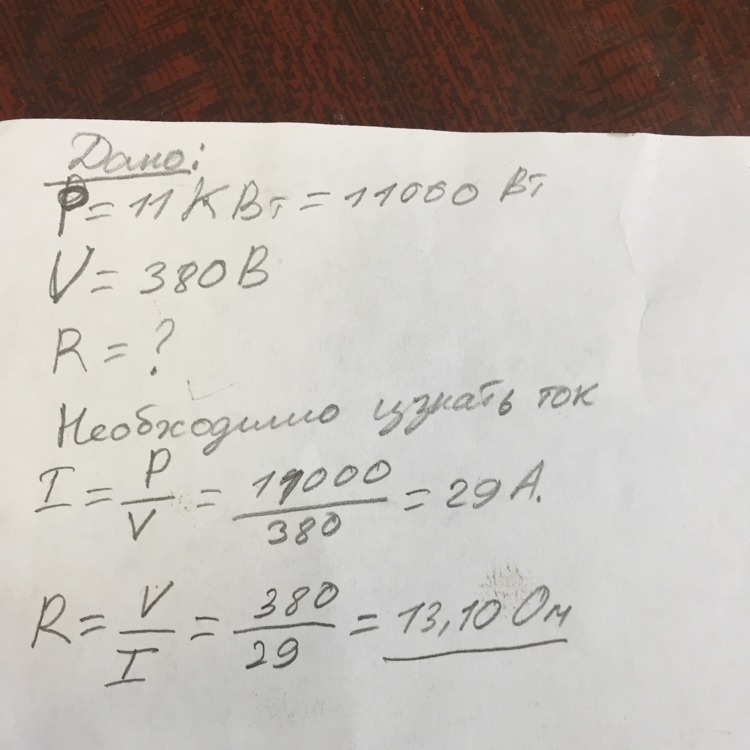 Дано:
P = 11 КВт = 11000 Вт
V = 380 В
R = ?
Необходимо узнать ток
I = P/V = 11000/380 = 29 А.
R = V/I = 380/29 = 13,10 Ом